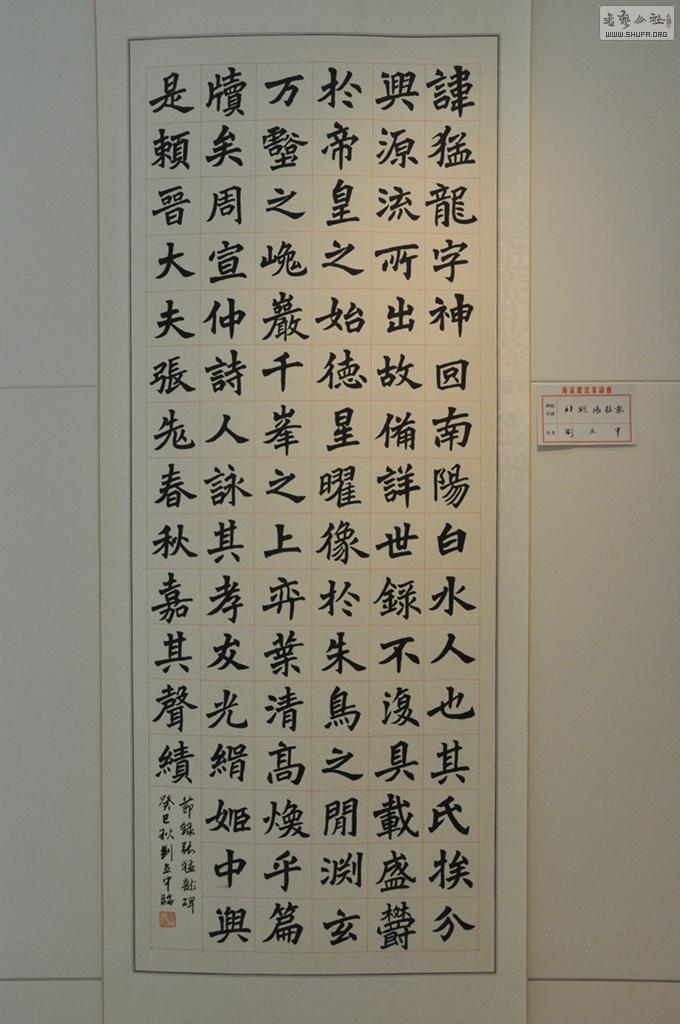 諱猛龍字神囙南陽白水人也其氏挨分
興源流所出故俻詳世錄不復具載盛欝
於帝皇之始德星曜像於朱鳥之閒渊玄
万壑之巉巖千峯之上弈葉清高煥乎篇
牘矣周宣仲詩人詠其孝友光縎姬中興
是頼晉大夫張老春秋嘉其聲績
節錄張猛龍碑
癸巳秋劉立中臨
海淀書法家協會
劉立中
書藝公社
WWW.SHUFA.ORG